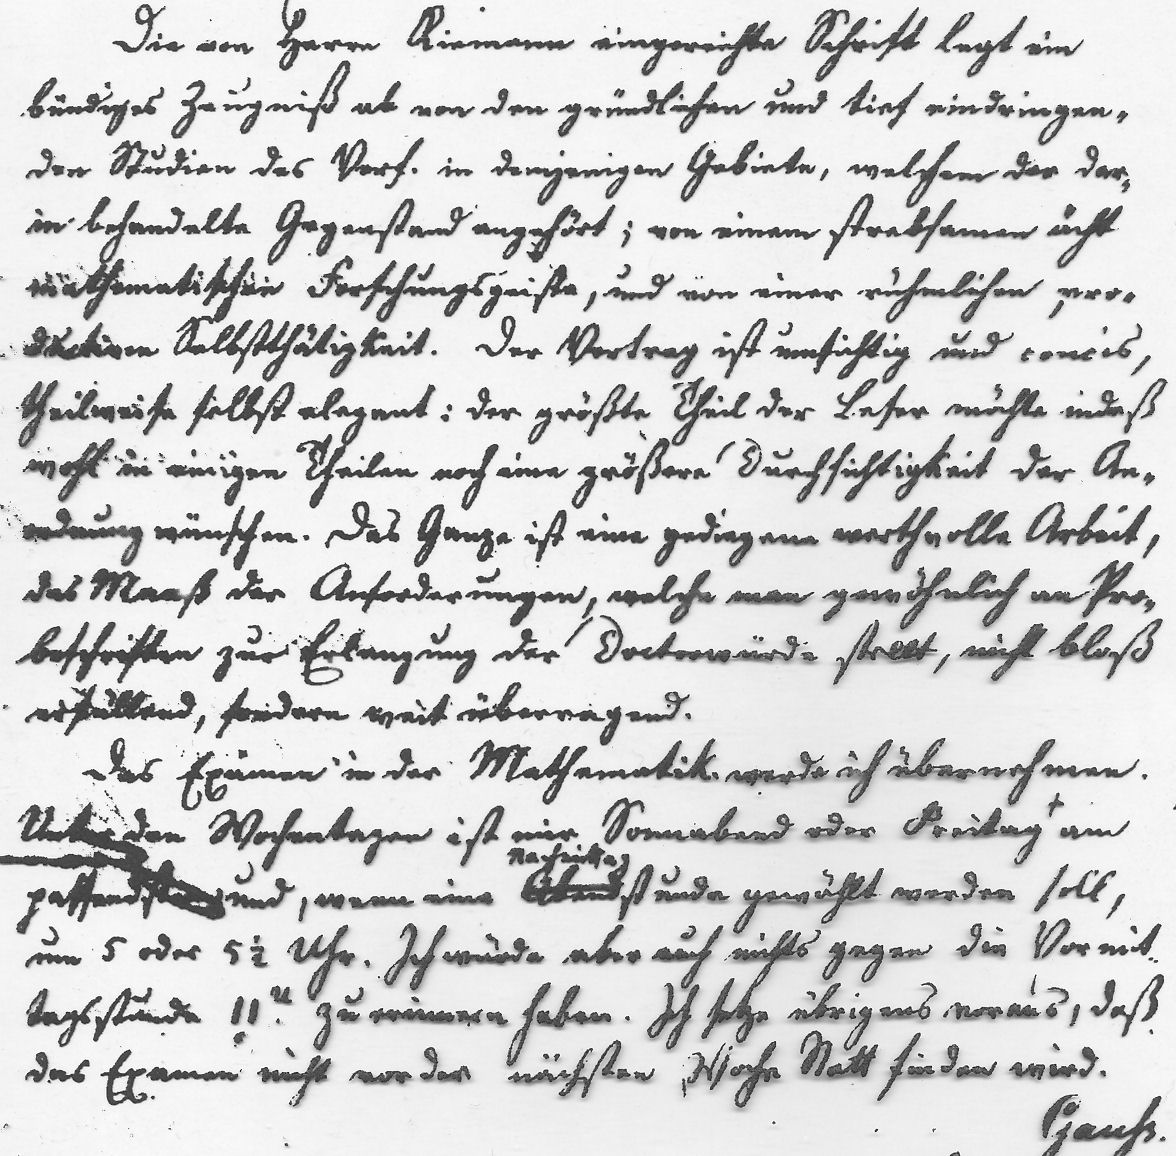 Die von Herrn Riemann eingereichte Schrift legt ein
bündiges Zeugniß ab von den gründlichen und tief eindringen-
den Studien des Verf. in demjenigen Gebiete, welchem der dar-
in behandelte Gegenstand angehört; von einem strebsamen ächt
mathematischen Forschungsgeiste, und von einer rühmlichen pro-
ductiven Selbstthätigkeit. Der Vortrag ist umsichtig und concis,
theilweise selbst elegant: der größte Theil der Leser möchte indeß
wohl in einigen Theilen noch eine größere Durchsichtigkeit der An-
ordnung wünschen. Das Ganze ist eine gediegene werthvolle Arbeit,
das Maaß der Anforderungen, welche man gewöhnlich an Pro-
beschriften zur Erlangung der Doctorwürde stellt, nicht bloß
erfüllend, sondern weit überragend.
Das Examen in der Mathematik werde ich übernehmen.
Unter den Wochentagen ist mir Sonnabend oder Freitag + am
Nachmittag
passendsten und, wenn eine Abendstunde gewählt werden soll,
um 5 oder 5½ Uhr. Ich würde aber auch nichts gegen die Vormit-
tagsstunde 11 U. zu erinnern haben. Ich setze übrigens voraus, daß
das Examen nicht vor der nächsten Woche Statt finden wird.
Gauß.